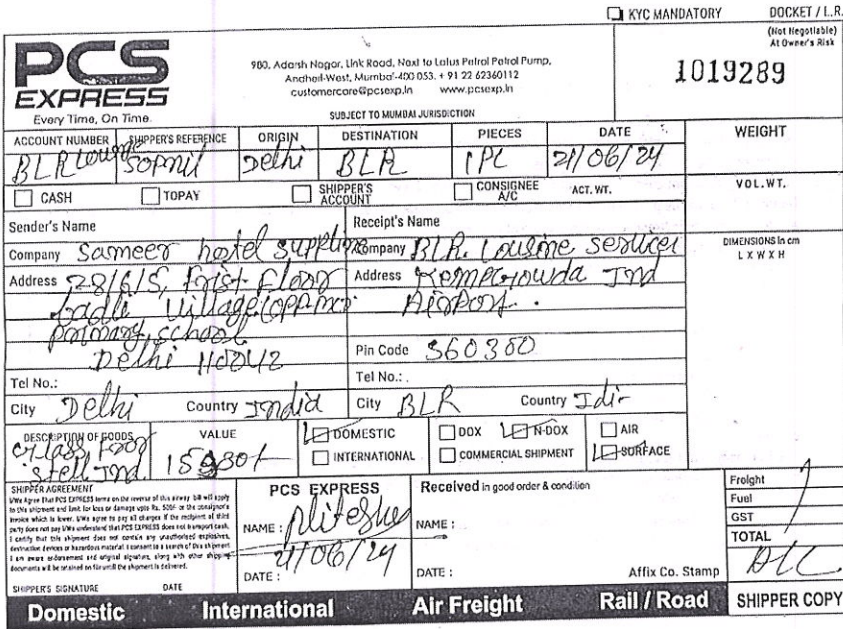 KYC MANDATORY DOCKET / L.R.
(Not Negotiable)
At Owner's Risk
PCS
EXPRESS
Every Time, On Time.
980, Adarsh Nagar, Link Road, Next to Lotus Petrol Petrol Pump,
Andheri-West, Mumbai-400 053. + 91 22 62360112
customercare@pcsexp.in www.pcsexp.in
SUBJECT TO MUMBAI JURISDICTION
1019289
ACCOUNT NUMBER SHIPPER'S REFERENCE ORIGIN DESTINATION PIECES DATE WEIGHT
BLR Sopnil Delhi BLR 1PC 21/06/24
CASH TOPAY SHIPPER'S ACCOUNT CONSIGNEE A/C ACT. WT. VOL.WT.
Sender's Name Receipt's Name
Company Sameer hotel Company BLR. services
DIMENSIONS in cm
L X W X H
Address 28/6/5, Frist Floor Address Kempegowda Ind
Village Airport.
primary school
Delhi 110042 Pin Code 560300
Tel No.: Tel No.:
City Delhi Country India City BLR Country
DESCRIPTION OF GOODS VALUE DOMESTIC DOX N-DOX AIR
INTERNATIONAL COMMERCIAL SHIPMENT SURFACE
Stell Ind
SHIPPER AGREEMENT
I/We Agree That PCS EXPRESS terms on the reverse of this airway bill will apply
to this shipment and limit for loss or damage upto Rs. 500/- or the consignor's
invoice which is lower. I/We agree to pay all charges if the recipient of third
party does not pay I/We understand that PCS EXPRESS does not transport cash.
I certify that this shipment does not contain any unauthorised explosives,
destructive devices or hazardous material I consent to a search of this shipment
I am aware endorsement and original signature, along with other shipping
documents will be retained on file until the shipment is delivered.
SHIPPER'S SIGNATURE DATE
PCS EXPRESS
NAME :
21/06/24
DATE :
Received in good order & condition
NAME :
DATE : Affix Co. Stamp
Freight
Fuel
GST
TOTAL
Domestic International Air Freight Rail / Road SHIPPER COPY